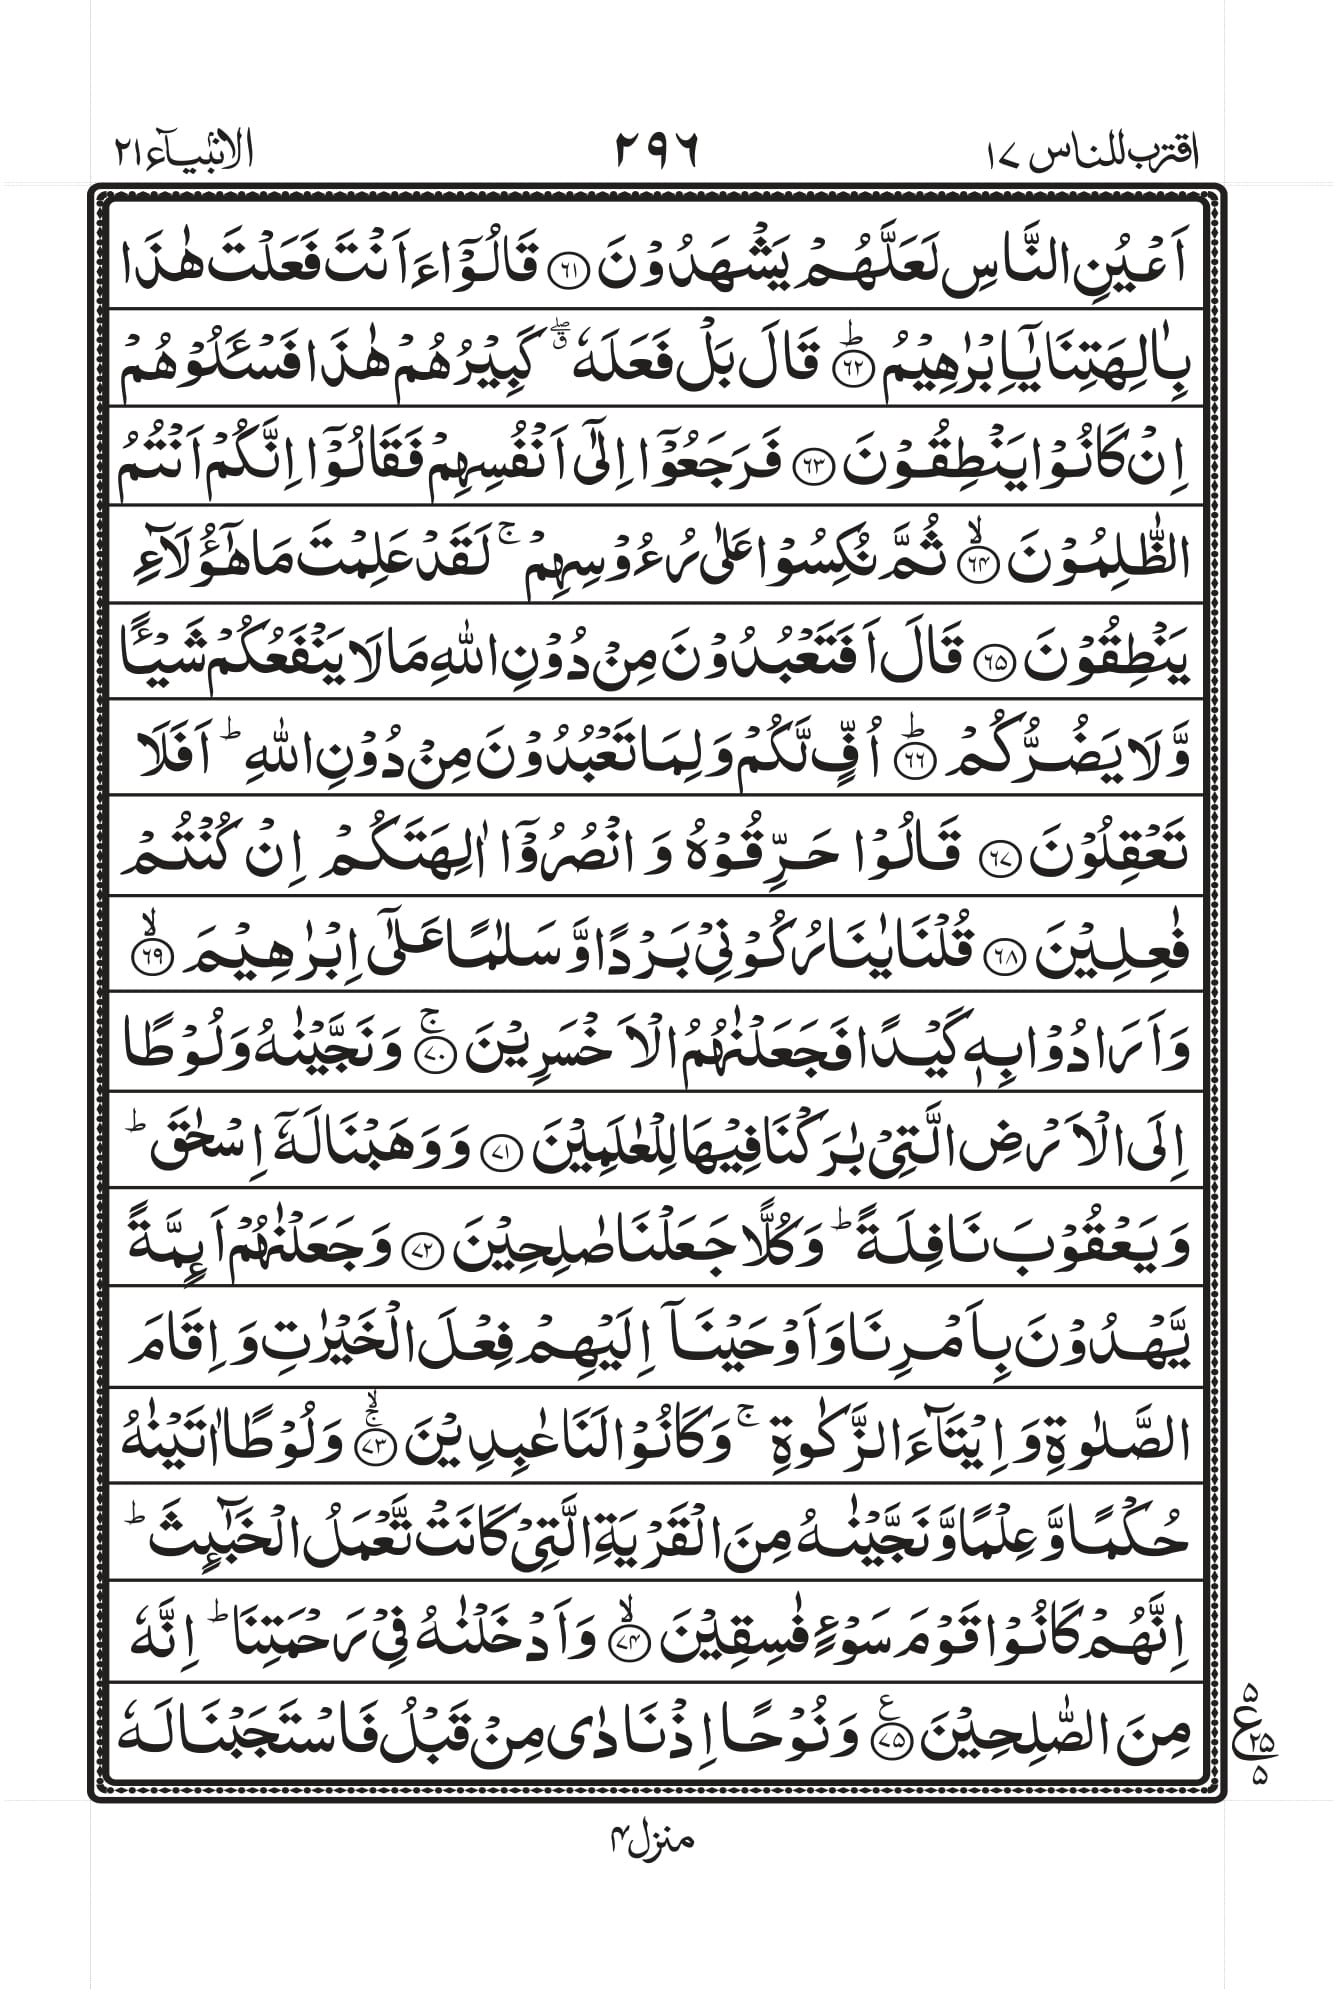 اقترب للناس ١٧ ٢٩٦ الانبیآء ٢١
اَعۡیُنِ النَّاسِ لَعَلَّهُمۡ یَشۡهَدُوۡنَ ﴿۶۱﴾ قَالُوۡۤا ءَاَنۡتَ فَعَلۡتَ هٰذَا
بِاٰلِهَتِنَا یٰۤاِبۡرٰهِیۡمُ ؕ﴿۶۲﴾ قَالَ بَلۡ فَعَلَهٗ ٭ۖ کَبِیۡرُهُمۡ هٰذَا فَسۡـَٔلُوۡهُمۡ
اِنۡ کَانُوۡا یَنۡطِقُوۡنَ ﴿۶۳﴾ فَرَجَعُوۡۤا اِلٰۤی اَنۡفُسِهِمۡ فَقَالُوۡۤا اِنَّکُمۡ اَنۡتُمُ
الظّٰلِمُوۡنَ ﴿ۙ۶۴﴾ ثُمَّ نُکِسُوۡا عَلٰی رُءُوۡسِهِمۡ ۚ لَقَدۡ عَلِمۡتَ مَا هٰۤؤُلَآءِ
یَنۡطِقُوۡنَ ﴿۶۵﴾ قَالَ اَفَتَعۡبُدُوۡنَ مِنۡ دُوۡنِ اللّٰهِ مَا لَا یَنۡفَعُکُمۡ شَیۡـًٔا
وَّ لَا یَضُرُّکُمۡ ﴿ؕ۶۶﴾ اُفٍّ لَّکُمۡ وَ لِمَا تَعۡبُدُوۡنَ مِنۡ دُوۡنِ اللّٰهِ ؕ اَفَلَا
تَعۡقِلُوۡنَ ﴿۶۷﴾ قَالُوۡا حَرِّقُوۡهُ وَ انۡصُرُوۡۤا اٰلِهَتَکُمۡ اِنۡ کُنۡتُمۡ
فٰعِلِیۡنَ ﴿۶۸﴾ قُلۡنَا یٰنَارُ کُوۡنِیۡ بَرۡدًا وَّ سَلٰمًا عَلٰۤی اِبۡرٰهِیۡمَ ﴿ۙ۶۹﴾
وَ اَرَادُوۡا بِهٖ کَیۡدًا فَجَعَلۡنٰهُمُ الۡاَخۡسَرِیۡنَ ﴿ۚ۷۰﴾ وَ نَجَّیۡنٰهُ وَ لُوۡطًا
اِلَی الۡاَرۡضِ الَّتِیۡ بٰرَکۡنَا فِیۡهَا لِلۡعٰلَمِیۡنَ ﴿۷۱﴾ وَ وَهَبۡنَا لَهٗۤ اِسۡحٰقَ ؕ
وَ یَعۡقُوۡبَ نَافِلَةً ؕ وَ کُلًّا جَعَلۡنَا صٰلِحِیۡنَ ﴿۷۲﴾ وَ جَعَلۡنٰهُمۡ اَئِمَّةً
یَّهۡدُوۡنَ بِاَمۡرِنَا وَ اَوۡحَیۡنَاۤ اِلَیۡهِمۡ فِعۡلَ الۡخَیۡرٰتِ وَ اِقَامَ
الصَّلٰوةِ وَ اِیۡتَآءَ الزَّکٰوةِ ۚ وَ کَانُوۡا لَنَا عٰبِدِیۡنَ ﴿ۚۙ۷۳﴾ وَ لُوۡطًا اٰتَیۡنٰهُ
حُکۡمًا وَّ عِلۡمًا وَّ نَجَّیۡنٰهُ مِنَ الۡقَرۡیَةِ الَّتِیۡ کَانَتۡ تَّعۡمَلُ الۡخَبٰٓئِثَ ؕ
اِنَّهُمۡ کَانُوۡا قَوۡمَ سَوۡءٍ فٰسِقِیۡنَ ﴿ۙ۷۴﴾ وَ اَدۡخَلۡنٰهُ فِیۡ رَحۡمَتِنَا ؕ اِنَّهٗ
مِنَ الصّٰلِحِیۡنَ ﴿۷۵﴾ع وَ نُوۡحًا اِذۡ نَادٰی مِنۡ قَبۡلُ فَاسۡتَجَبۡنَا لَهٗ
۵
ع ۲۵
۵
منزل ۴